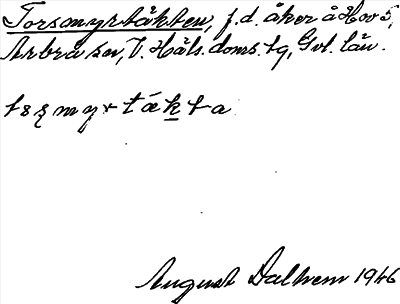 Torsmyrtäkten, f.d. åker å Hov 5,
Arbrå sn, V. Häls. doms. tg, Gvl. län.
August Dalhem 1946